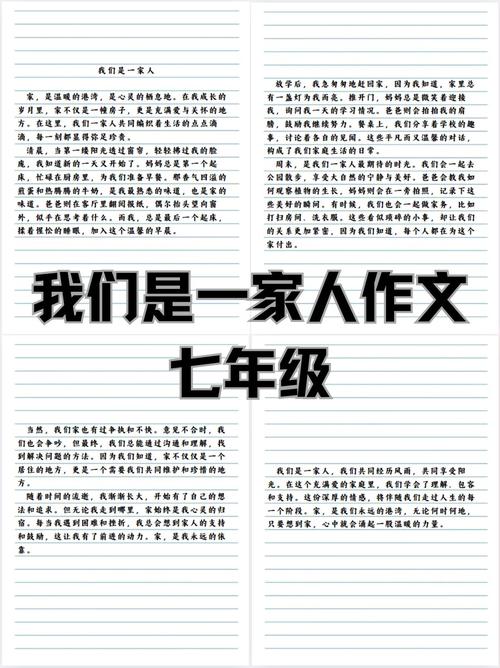 我们是一家人
家，是温暖的港湾，是心灵的栖息地。在我成长的
岁月里，家不仅是一幢房子，更是充满爱与关怀的地
方。在这里，我们一家人共同编织着生活的点点滴
滴，每一刻都显得弥足珍贵。
清晨，当第一缕阳光透过窗帘，轻轻拂过我的脸
庞，我知道新的一天又开始了。妈妈总是第一个起
床，忙碌在厨房里，为我们准备早餐。那香气四溢的
煎蛋和热腾腾的牛奶，是我最熟悉的味道，也是家的
味道。爸爸则在客厅里翻阅报纸，偶尔抬头望向窗
外，似乎在思考着什么。而我，总是最后一个起床，
揉着惺忪的睡眼，加入这个温馨的早晨。
放学后，我急匆匆地赶回家，因为我知道，家里总
有一盏灯为我而亮。推开门，妈妈总是微笑着迎接
我，询问我一天的学习情况。爸爸则会拍拍我的肩
膀，鼓励我继续努力。餐桌上，我们分享着学校的趣
事，讨论着各自的见闻。这些平凡而又温馨的对话，
构成了我们家庭生活的日常。
周末，是我们一家人最期待的时光。我们会一起去
公园散步，享受大自然的宁静与美好。爸爸会教我如
何观察植物的生长，妈妈则会在一旁拍照，记录下这
些美好的瞬间。有时候，我们也会一起做家务，比如
打扫房间、洗衣服。这些看似琐碎的小事，却让我们
的关系更加紧密，因为我们知道，每个人都在为这个
家付出。
我们是一家人作文
七年级
当然，我们家也有过争执和不快。意见不合时，我
们也会争吵，但最终，我们总能通过沟通和理解，找
到解决问题的方法。因为我们知道，家不仅仅是一个
居住的地方，更是一个需要我们共同维护和珍惜的地
方。
随着时间的流逝，我渐渐长大，开始有了自己的想
法和追求。但无论我走到哪里，家始终是我心灵的归
宿。每当我遇到困难和挫折，我总会想到家人的支持
和鼓励，这让我有了前进的动力。家，是我永远的依
靠。
我们是一家人，我们共同经历风雨，共同享受阳
光。在这个充满爱的家庭里，我们学会了理解、包容
和支持。这份深厚的情感，将伴随我们走过人生的每
一个阶段。家，是我们永远的港湾，无论何时何地，
只要想到家，心中就会涌起一股温暖的力量。